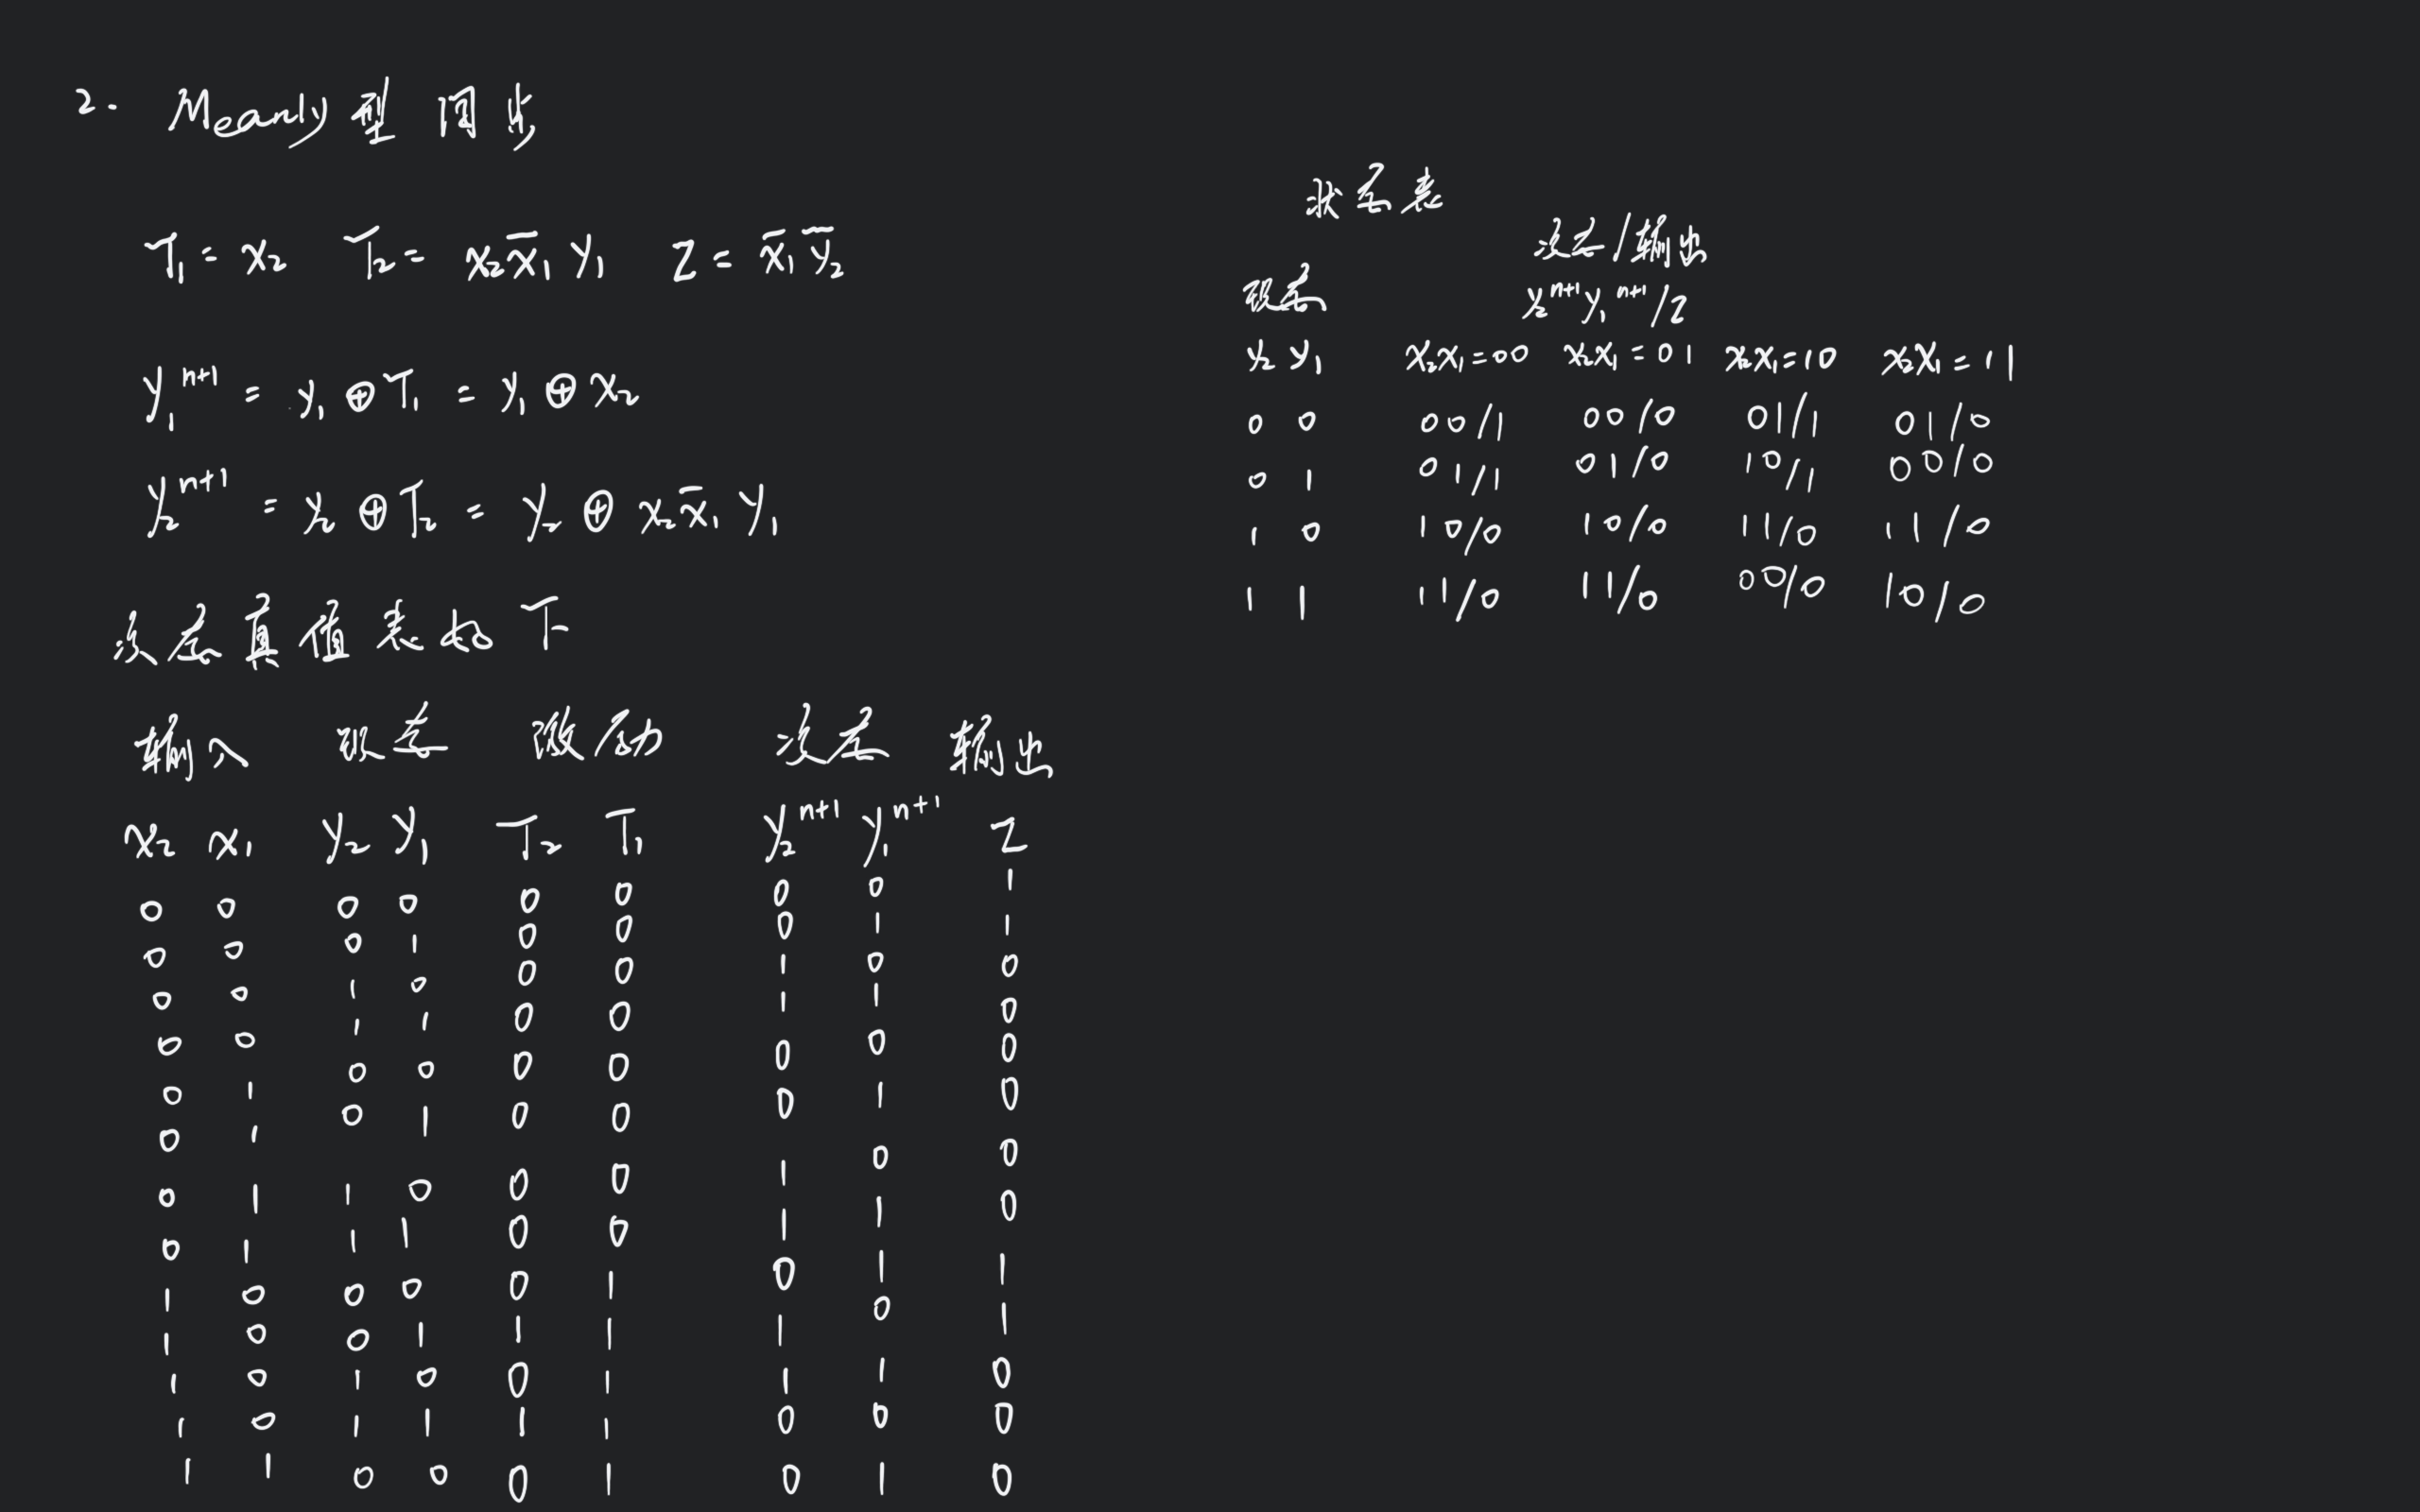 2. Meanly型 同步
T₁ = x₂ T₂ = x₂x̄₁y₁ Z = x̄₁ȳ₂
y₁ⁿ⁺¹ = y₁⊕T₁ = y₁⊕x₂
y₂ⁿ⁺¹ = y₂⊕T₂ = y₂⊕x₂x̄₁y₁
次态真值表如下
输入 现态 激励 次态 输出
x₂ x₁ y₂ y₁ T₂ T₁ y₂ⁿ⁺¹ y₁ⁿ⁺¹ Z
0 0 0 0 0 0 0 0 1
0 0 0 1 0 0 0 1 1
0 0 1 0 0 0 1 0 0
0 0 1 1 0 0 1 1 0
0 1 0 0 0 0 0 0 0
0 1 0 1 0 0 0 1 0
0 1 1 0 0 0 1 0 0
0 1 1 1 0 0 1 1 0
1 0 0 0 0 1 0 1 1
1 0 0 1 1 1 1 0 1
1 0 1 0 0 1 1 1 0
1 0 1 1 1 1 0 0 0
1 1 0 0 0 1 0 1 0
状态表
次态/输出
现态 y₂ⁿ⁺¹y₁ⁿ⁺¹/Z
y₂ y₁ x₂x₁=00 x₂x₁=01 x₂x₁=10 x₂x₁=11
0 0 00/1 00/0 01/1 01/0
0 1 01/1 01/0 10/1 00/0
1 0 10/0 10/0 11/0 11/0
1 1 11/0 11/0 00/0 10/0